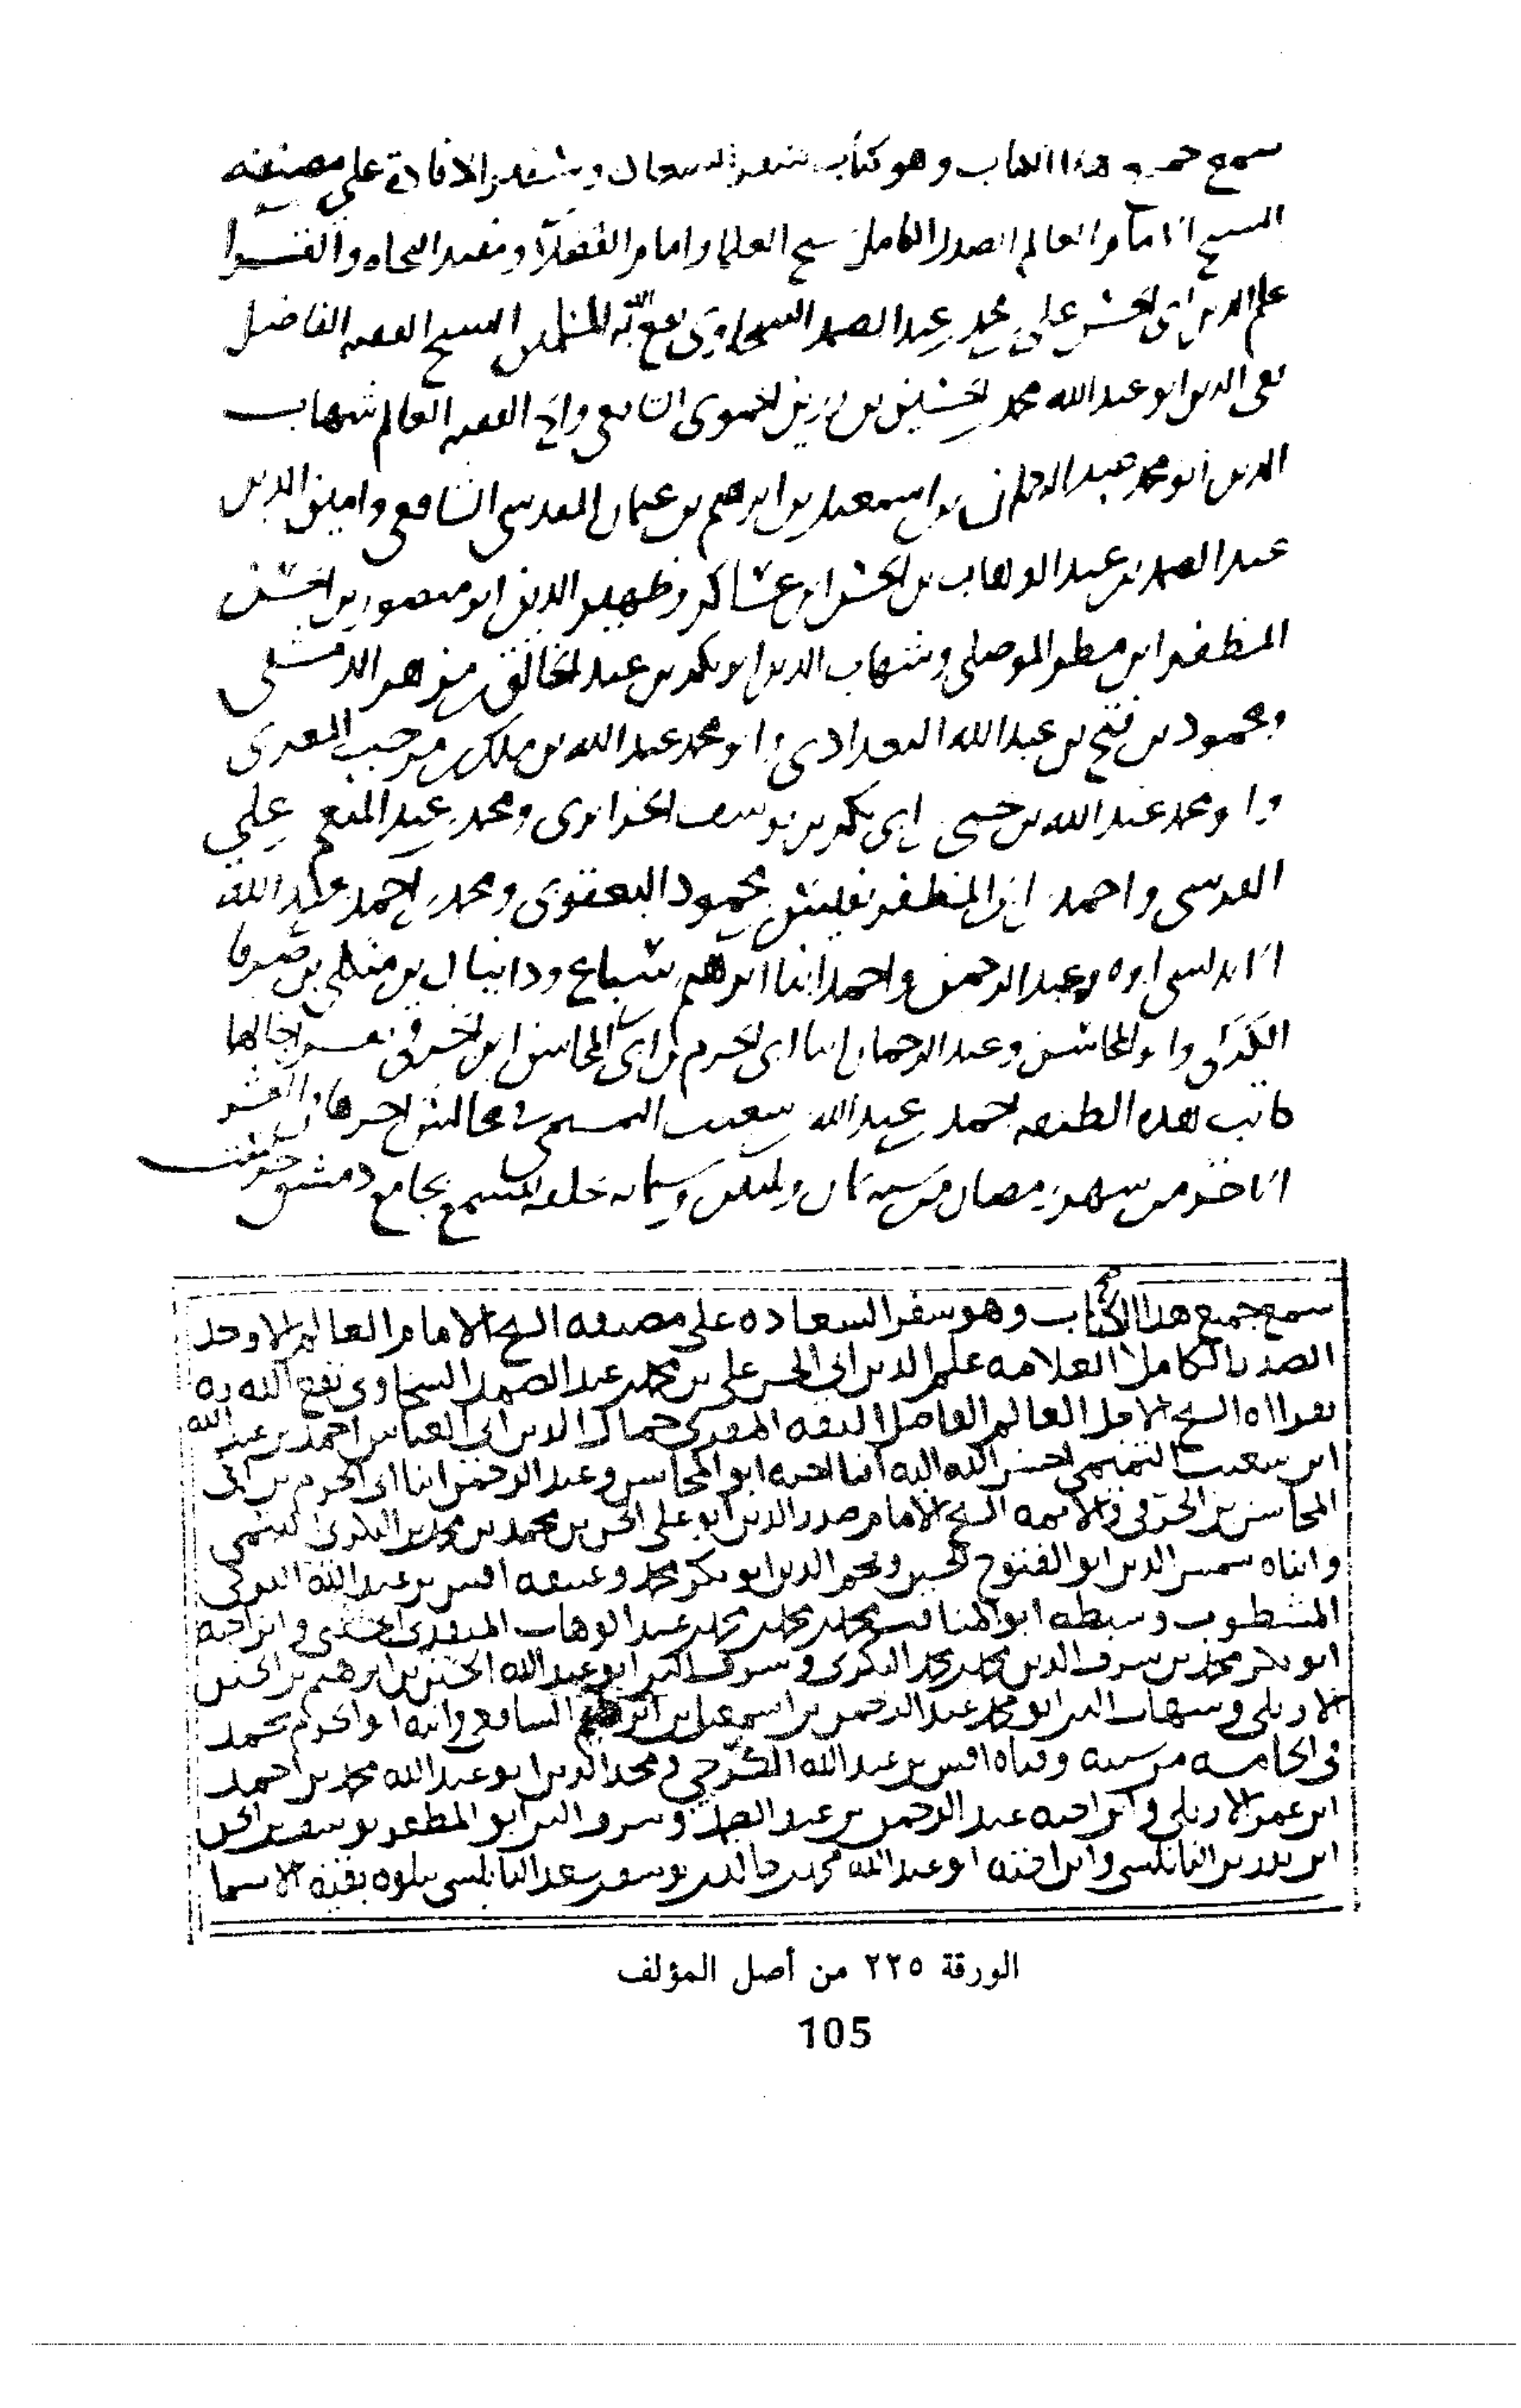 سمع جميع هذا الكتاب وهو كتاب سفر السعادة وسفير الافادة على مصنفه
الشيخ الامام العالم الصدر الكامل شيخ العلما وامام الفضلا ومفيد النحاه والقرا
علم الدين ابى الحسن على بن محمد بن عبد الصمد السخاوى نفع الله به المسلمين الشيخ الفقيه الفاضل
تقى الدين ابو عبد الله محمد بن الحسين بن رزين الحموى الشافعى والفقيه العالم شهاب
الدين ابو محمد عبد الرحمان بن اسمعيل بن ابرهيم بن عثمان المقدسى الشافعى وامين الدين
عبد الصمد بن عبد الوهاب بن الحسن ابن عساكر وظهير الدين ابو منصور بن الحسن
المظفر ابن مطر الموصلى وشهاب الدين ابو بكر بن عبد الخالق بن مزهر الدمشقى
ومحمود بن فتح بن عبد الله البغدادى وابو محمد عبد الله بن ملك بن مرحب المعرى
وابو محمد عبد الله بن ابى بكر بن يوسف الحرانى ومحمد بن عبد المنعم على
القدسى واحمد المظفر محمود البعقوبى ومحمد بن احمد بن عبد الله
الاندلسى وعبد الرحمن واحمد ابنا ابرهيم بن سباع ودانيال بن منكلى بن صرفا
الكركى وابو المحاسن وعبد الرحمان ابنا ابى الحرم بن ابى المحاسن ابن الخرقى خالها
كاتب هذه الطبقه احمد بن عبد الله بن شعيب التميمى فى مجالس اخرها العشر
الاخر من شهر رمضان من سنه ثمان وثلثين وستمايه بحلقه المسمع بجامع دمشق
سمع جميع هذا الكتاب وهو سفر السعاده على مصنفه الشيخ الامام العالم الاوحد
الصدر الكامل العلامه علم الدين ابى الحسن على بن محمد بن عبد الصمد السخاوى نفع الله به
بقراءه الشيخ الاجل العالم الفاضل الثقه المقرى جمال الدين ابى العباس احمد بن عبد الله
ابن شعيب التميمى احسن الله اليه ابنا اخته ابو المحاسن وعبد الرحمن ابنا ابى الحرم بن ابى
المحاسن بن الخرقى والائمه الشيخ الامام صدر الدين ابو على الحسن بن محمد بن محمد بن البكرى التيمى
وابناه شمس الدين ابو الفتوح الحسين ونجم الدين ابو بكر محمد وعتيقه اقسر بن عبد الله النوبى
المشطوب وسبطه ابو المناقب محمد بن محمد بن محمد بن عبد الوهاب المنقدى الحسنى وابن اخيه
ابو بكر محمد بن شرف الدين محمد بن محمد البكرى وشرف الدين ابو عبد الله الحسين بن ابرهيم بن الحسين
الاربلى وشهاب الدين ابو محمد عبد الرحمن بن اسمعيل بن ابرهيم الشافعى وابنه ابو الحرم محمد
فى الخامسه من سنه وفتاه اقسر بن عبد الله الكرجى ومجد الدين ابو عبد الله محمد بن احمد
ابن عمر الاربلى وابن اخيه عبد الرحمن بن عبد الصمد وشرف الدين ابو المظفر يوسف بن الحسن
ابن بدر بن النابلسى وابن اخته ابو عبد الله محمد بن خالد بن يوسف بن سعد النابلسى يتلوه بقيه الاسما
الورقة ٢٢٥ من أصل المؤلف
105